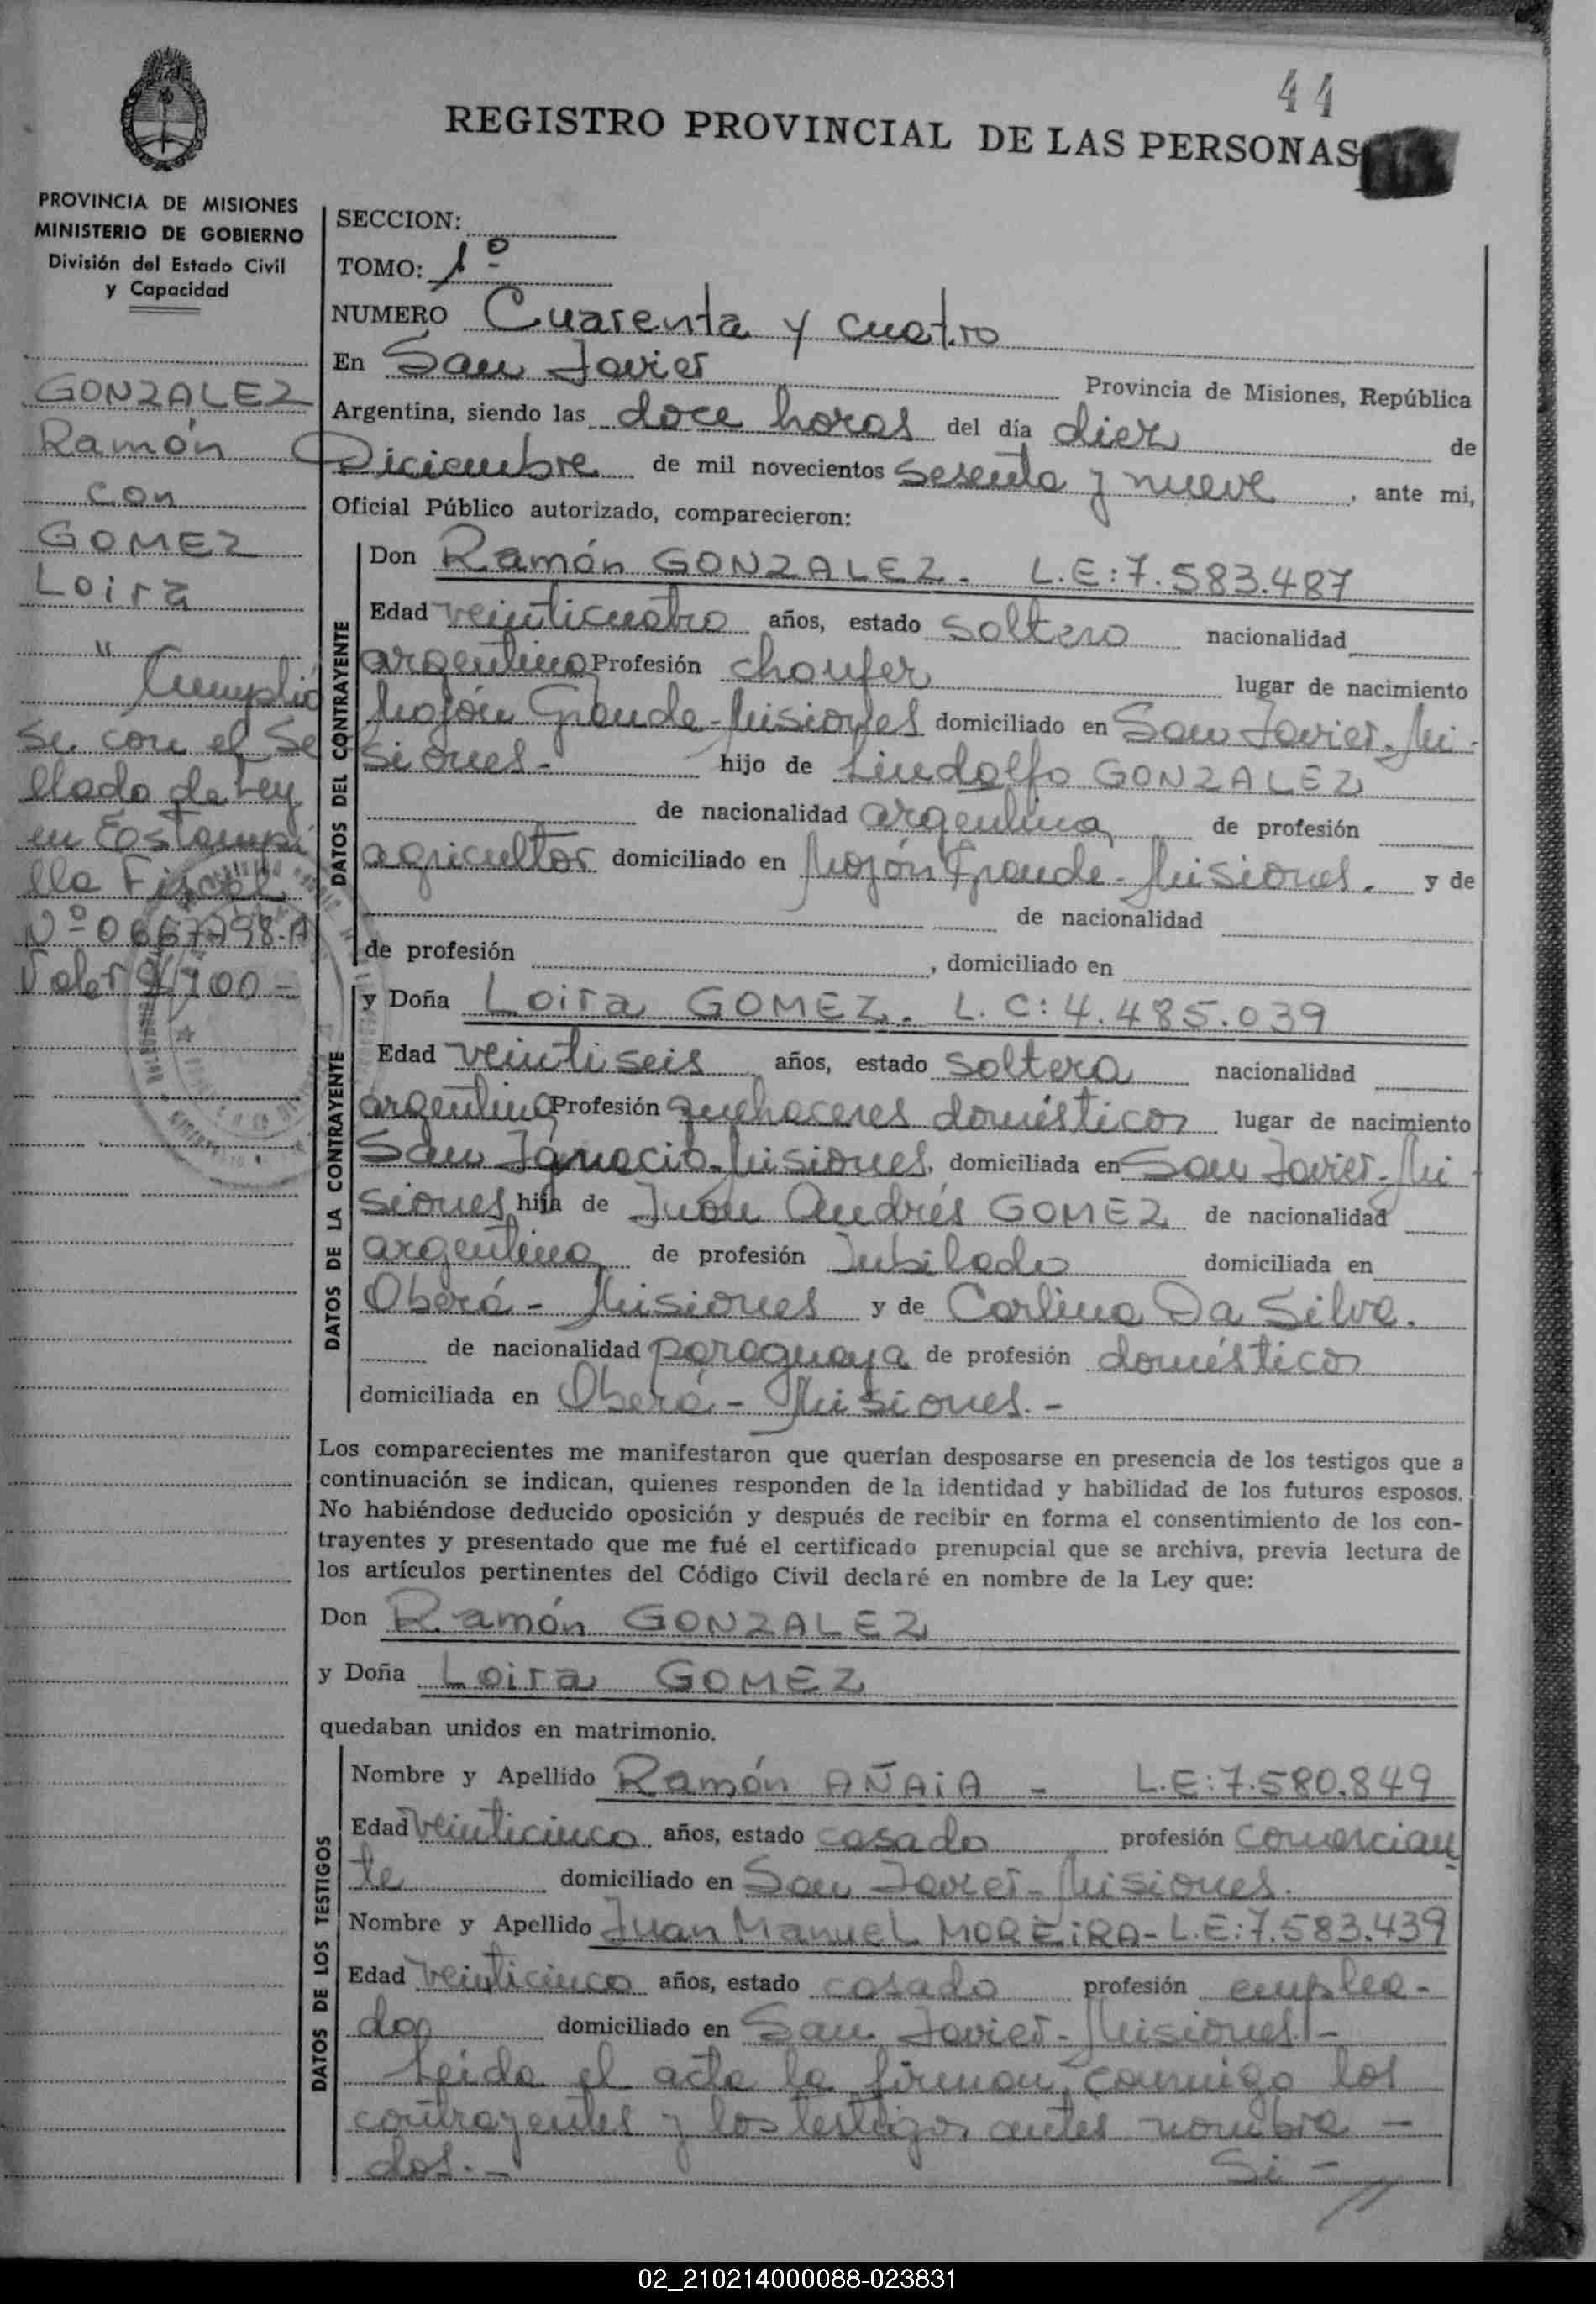 44
REGISTRO PROVINCIAL DE LAS PERSONAS
PROVINCIA DE MISIONES
MINISTERIO DE GOBIERNO
División del Estado Civil
y Capacidad
GONZALEZ
Ramón
con
GOMEZ
Loira
" Cumplió
se con el Se
llado de Ley
en Estampi
lla Fiscal
Nº 0667798-A
Valor $ 700=
SECCION:
TOMO: 1º
NUMERO Cuarenta y cuatro
En San Javier Provincia de Misiones, República
Argentina, siendo las doce horas del día diez de
Diciembre de mil novecientos sesenta y nueve, ante mi,
Oficial Público autorizado, comparecieron:
DATOS DEL CONTRAYENTE
Don Ramón GONZALEZ. L.E: 7.583.487
Edad veinticuatro años, estado soltero nacionalidad
argentina Profesión choufer lugar de nacimiento
Mojón Grande-Misiones domiciliado en San Javier-Mi-
siones- hijo de Lindolfo GONZALEZ
de nacionalidad argentina de profesión
agricultor domiciliado en Mojón Grande-Misiones. y de
de nacionalidad
de profesión , domiciliado en
DATOS DE LA CONTRAYENTE
y Doña Loira GOMEZ. L.C: 4.485.039
Edad veintiseis años, estado soltera nacionalidad
argentina Profesión quehaceres domésticos lugar de nacimiento
San Ignacio-Misiones, domiciliada en San Javier-Mi
siones hija de Juan Andrés GOMEZ de nacionalidad
argentina de profesión Jubilado domiciliada en
Oberá - Misiones y de Carlina Da Silva.
de nacionalidad paraguaya de profesión domésticos
domiciliada en Oberá - Misiones.-
Los comparecientes me manifestaron que querían desposarse en presencia de los testigos que a
continuación se indican, quienes responden de la identidad y habilidad de los futuros esposos.
No habiéndose deducido oposición y después de recibir en forma el consentimiento de los con-
trayentes y presentado que me fué el certificado prenupcial que se archiva, previa lectura de
los artículos pertinentes del Código Civil declaré en nombre de la Ley que:
Don Ramón GONZALEZ
y Doña Loira GOMEZ
quedaban unidos en matrimonio.
DATOS DE LOS TESTIGOS
Nombre y Apellido Ramón AÑAIA - L.E: 7.580.849
Edad veinticinco años, estado casado profesión comercian
te domiciliado en San Javier-Misiones.
Nombre y Apellido Juan Manuel MOREIRA- L.E: 7.583.439
Edad veinticinco años, estado casado profesión emplea-
do domiciliado en San Javier-Misiones.-
Leida el acta la firman, conmigo los
contrayentes y los testigos antes nombra-
dos.- Si -
02_210214000088-023831